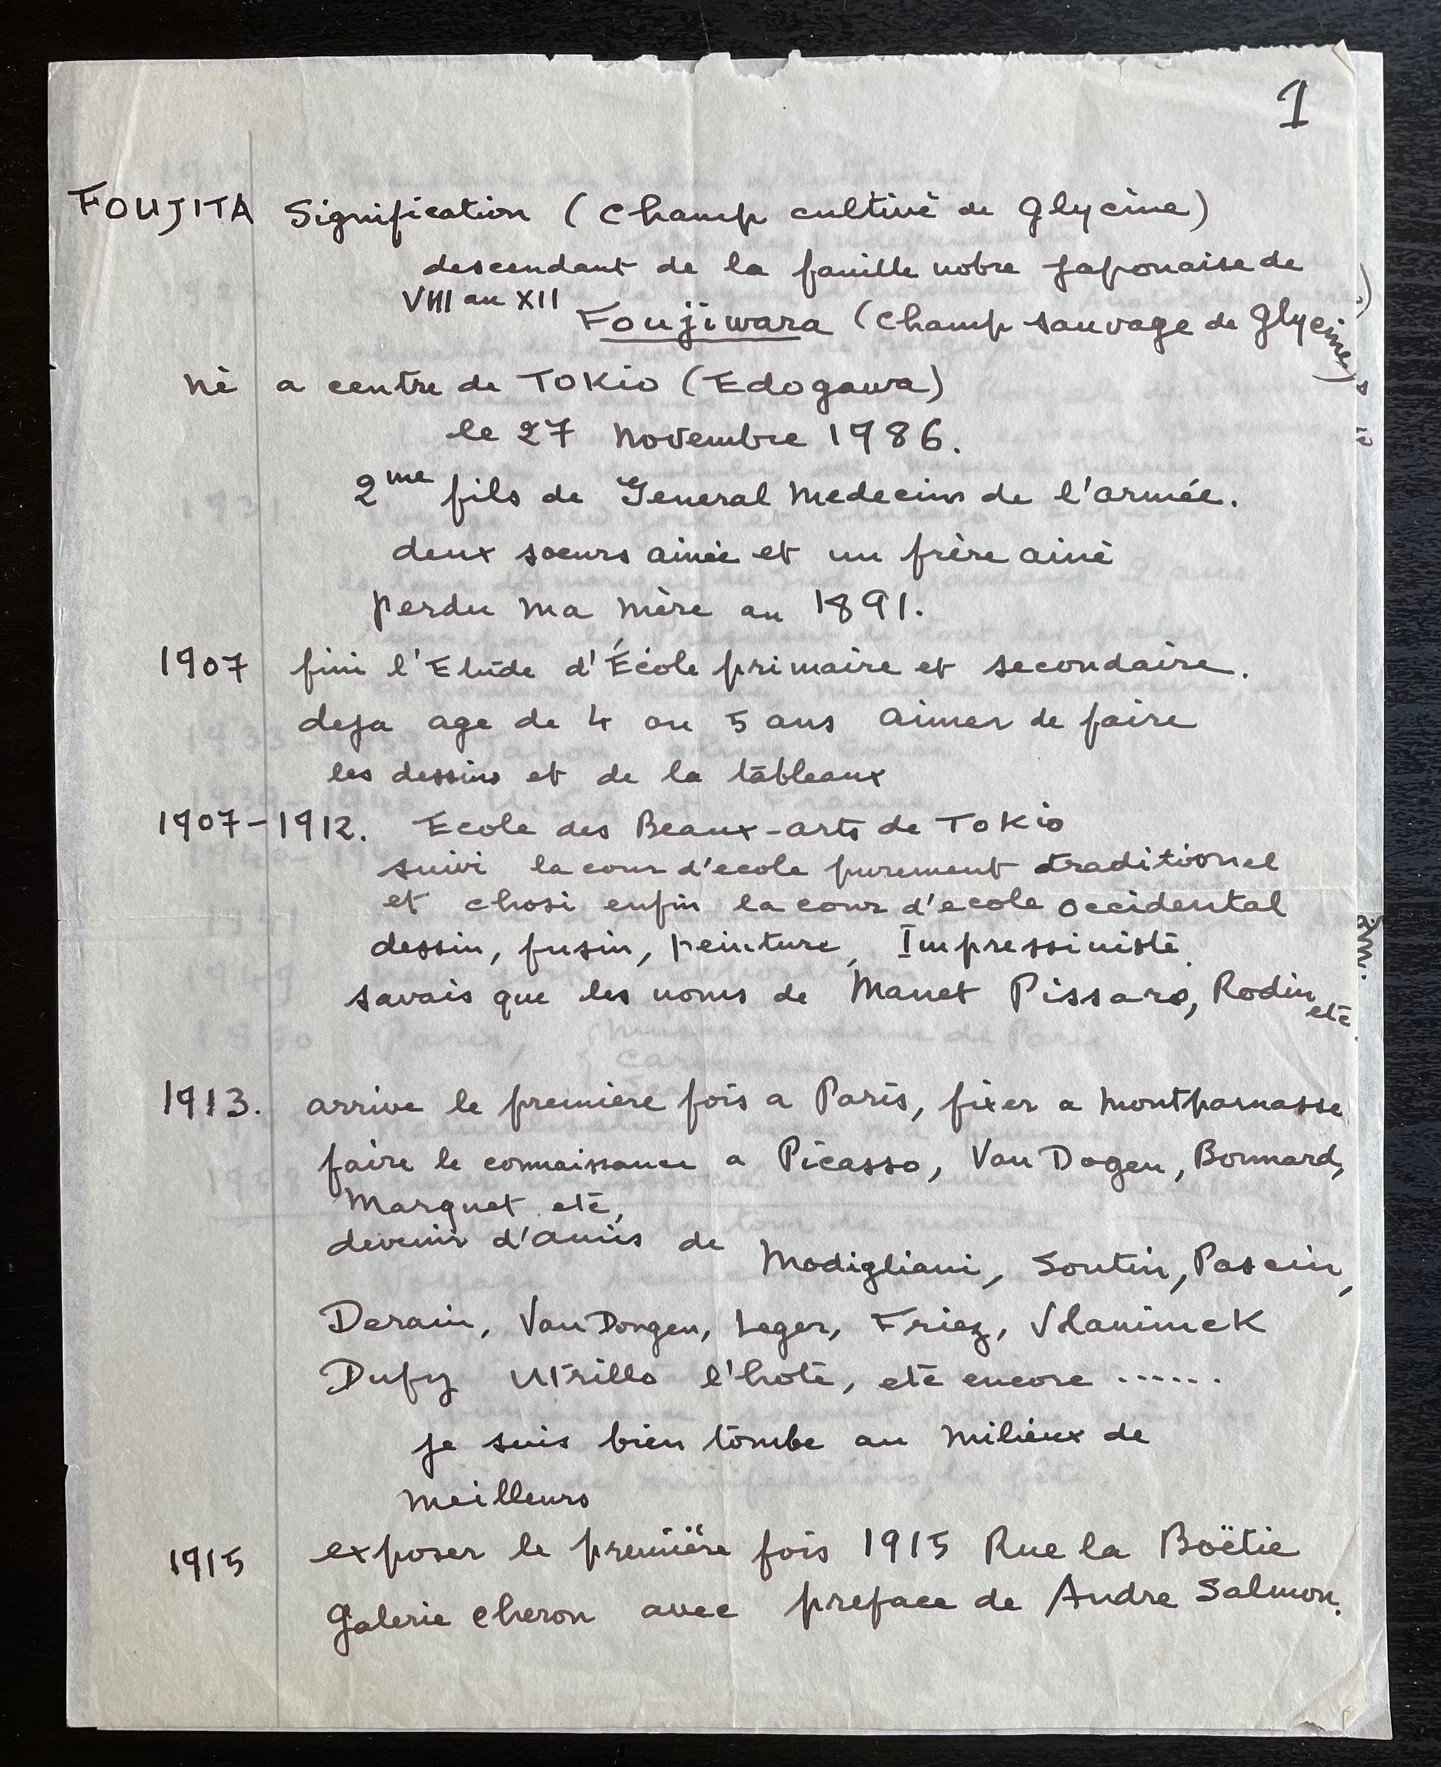 1
FOUJITA Signification (champ cultivé de glycine)
descendant de la famille nobre japonaise de
VIII au XII
Foujiwara (champ sauvage de glycine)
né a centre de TOKIO (Edogawa)
le 27 novembre 1986.
2me fils de General medecins de l'armée.
deux soeurs ainée et un frère ainé
perdu ma mère au 1891.
1907 fini l'Etude d'École primaire et secondaire.
deja age de 4 ou 5 ans aimer de faire
les dessins et de la tableaux
1907-1912. Ecole des Beaux-arts de TOKIO
suivi la cour d'ecole purement traditionel
et chosi enfin la cour d'ecole occidental
dessin, fusin, peinture, Impressiniste.
savais que les noms de Manet Pissaro, Rodin etc
1913. arrive le premiere fois a Paris, fixer a montparnasse
faire le connaissance a Picasso, Van Dogen, Bonnard,
Marquet etc,
devenir d'amis de Modigliani, Soutin, Pascin,
Derain, Van Dongen, Leger, Friez, Vlaminck
Dufy Utrillo l'hote, etc encore ......
je suis bien tombe au milieux de
meilleurs
1915 exposer le première fois 1915 Rue la Boëtie
galerie cheron avec preface de Andre Salmon.